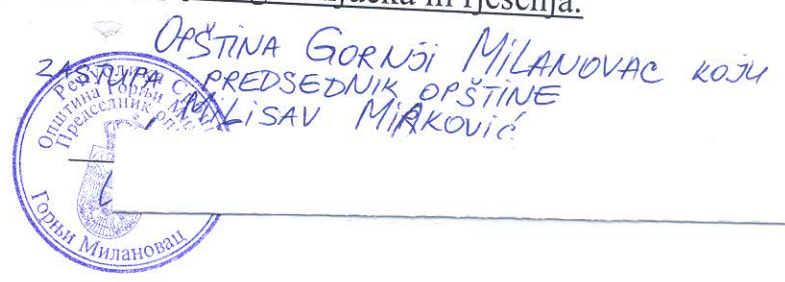 rješenja.
OPŠTINA GORNJI MILANOVAC KOJU
ZASTUPA PREDSEDNIK OPŠTINE
MILISAV MIRKOVIĆ
Република С
Општина Горњи Ми
Председник оп
Горњи Милановац